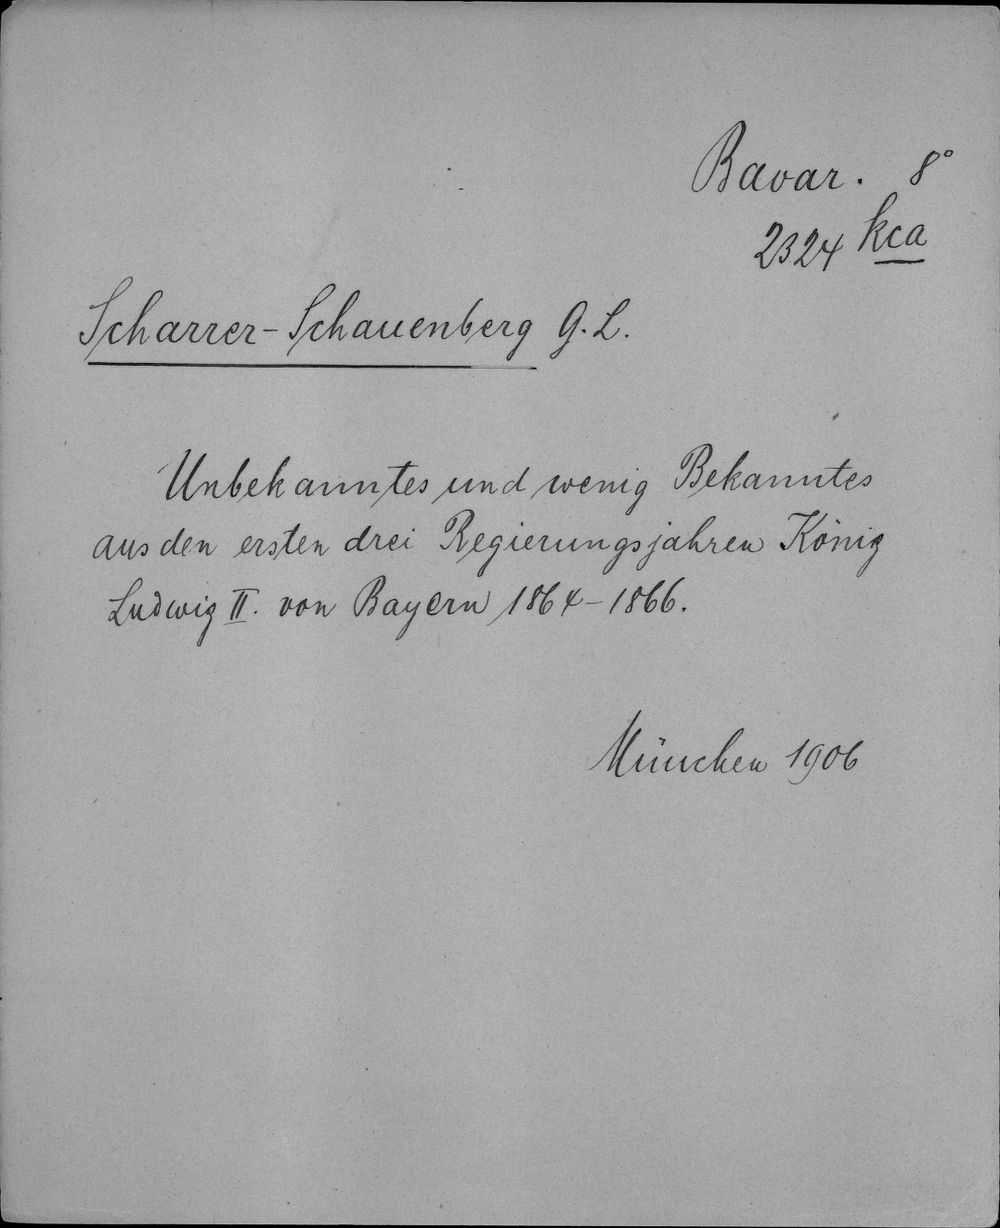 Bavar. 8°
2324 kca
Scharrer-Schauenberg G. L.
Unbekanntes und wenig Bekanntes
aus den ersten drei Regierungsjahren König
Ludwig II. von Bayern 1864-1866.
München 1906